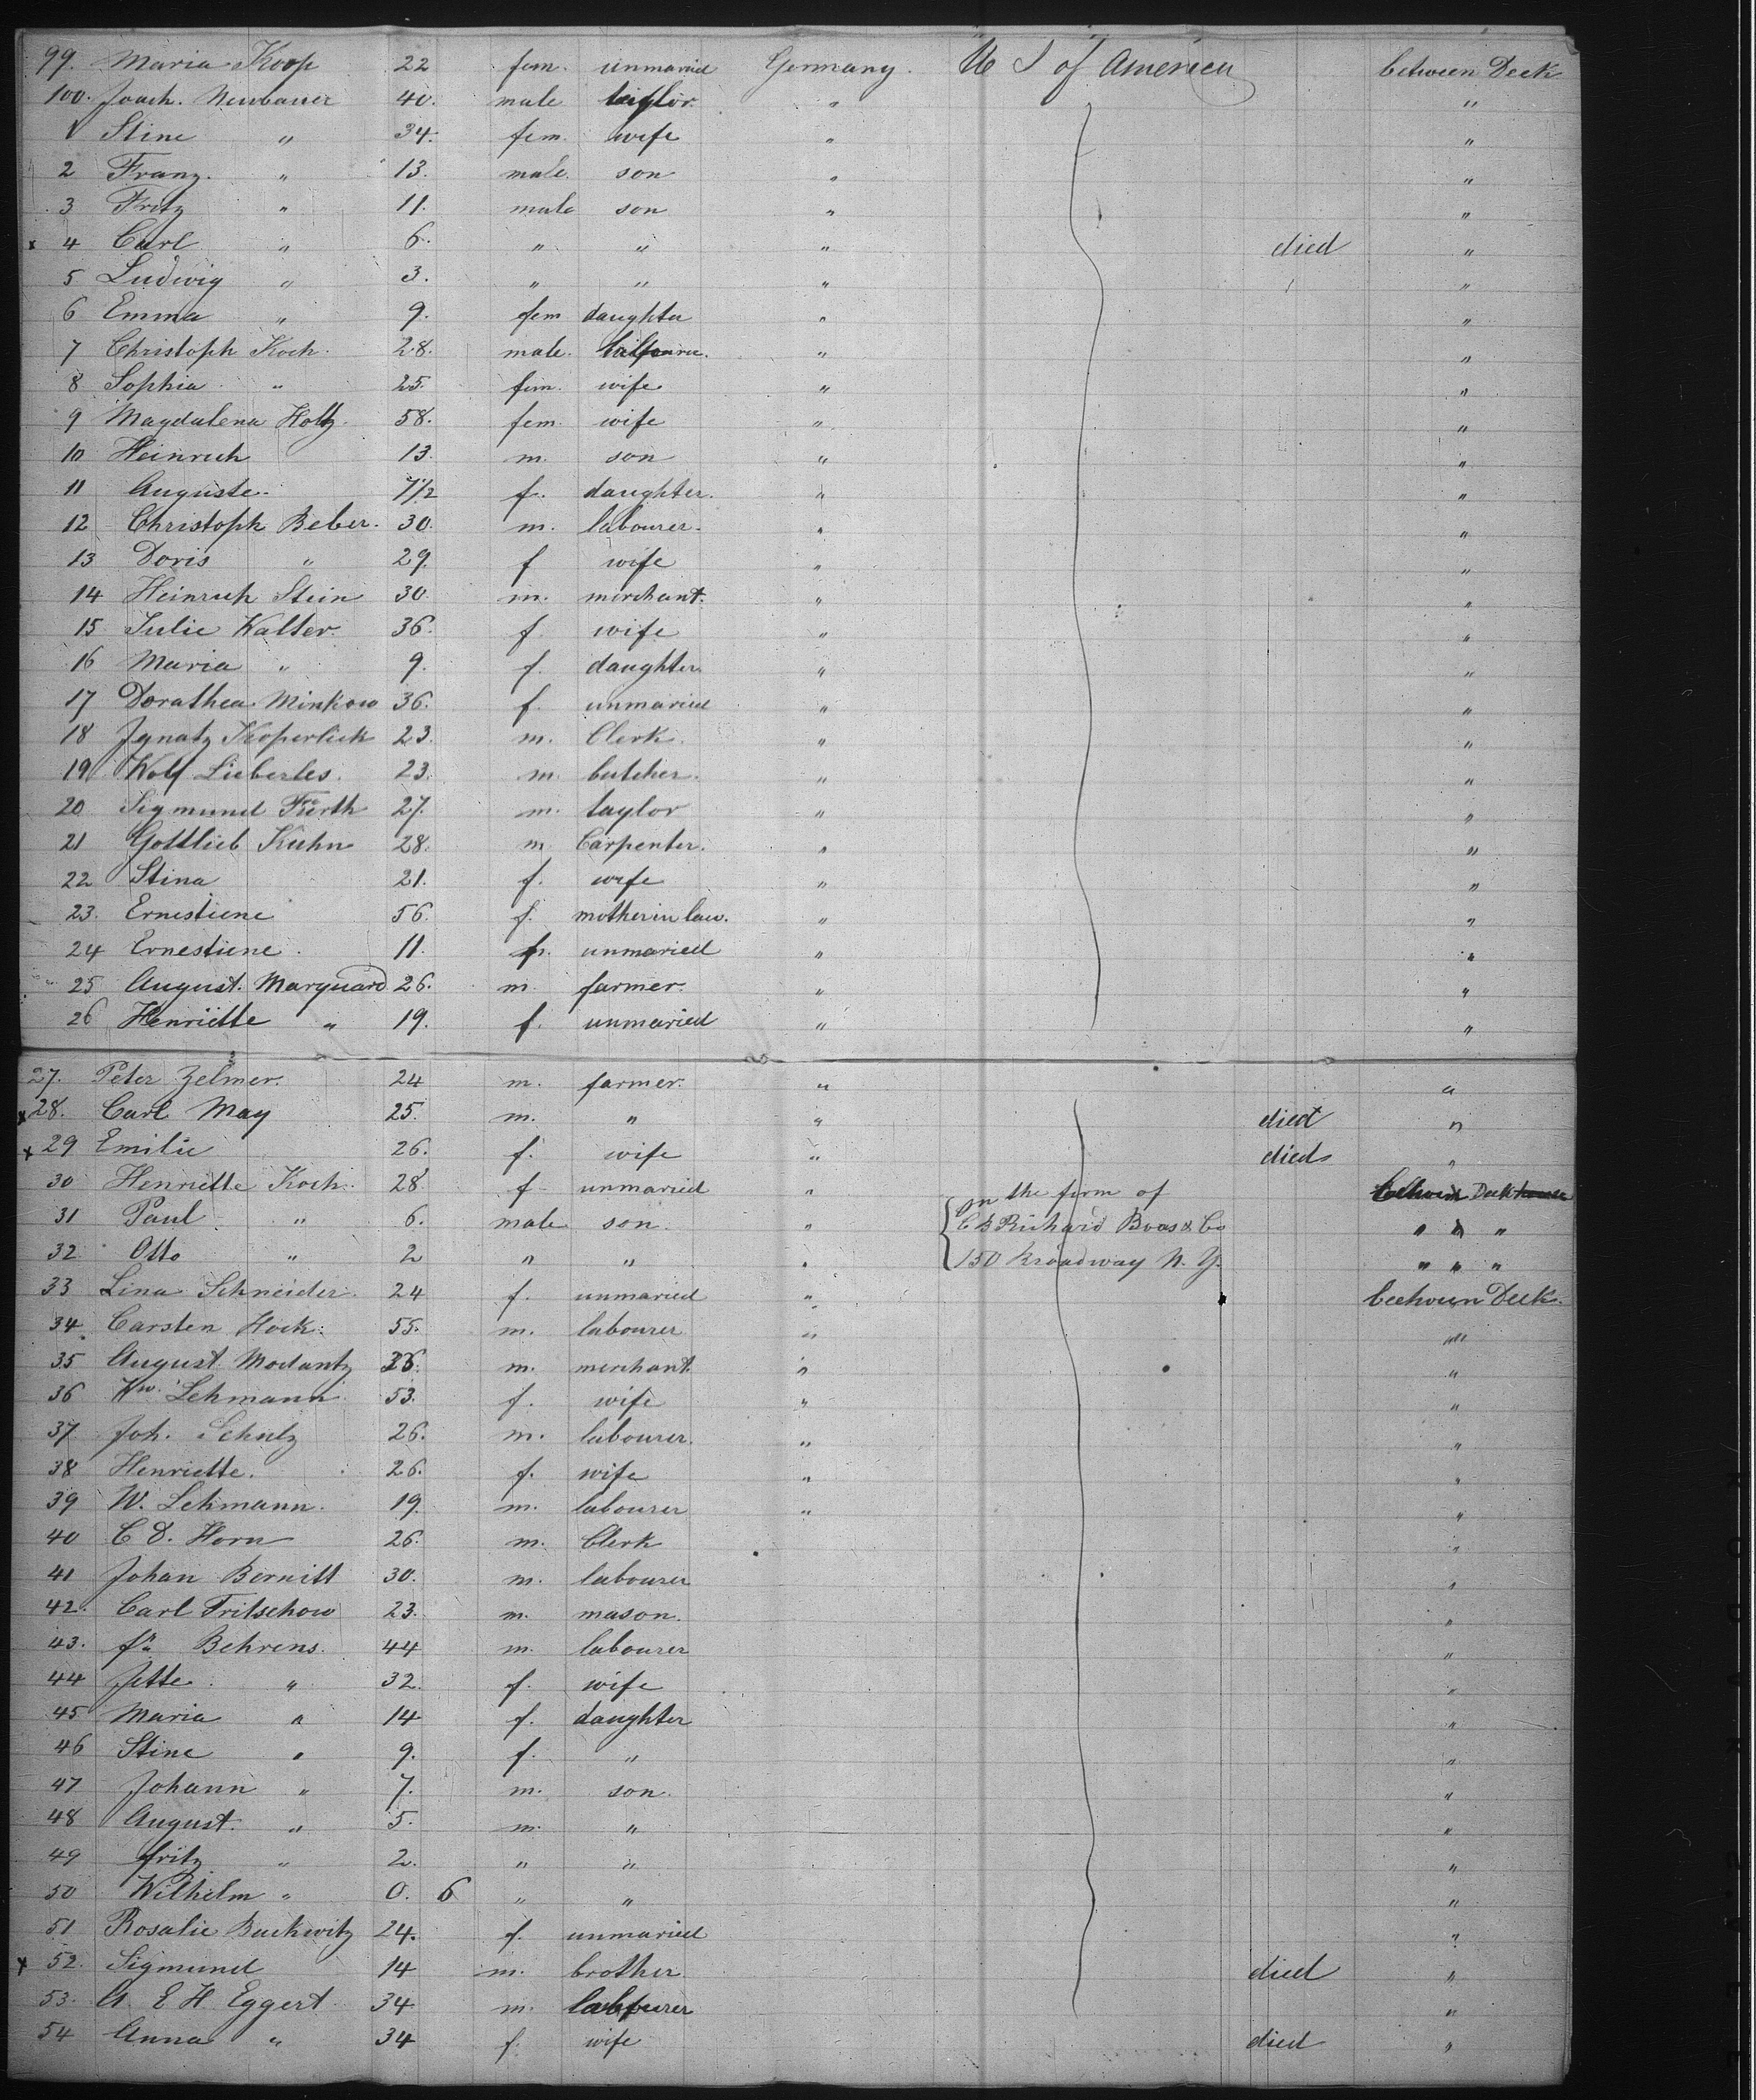 99. Maria Koop 22 fem. unmarried Germany. U S of America between Deck
100. Joach. Neubauer 40. male taylor. " "
1 Stine " 34. fem. wife " "
2 Franz. " 13. male. son " "
3 Fritz " 11. male son " "
x 4 Carl " 6. " " " died "
5 Ludwig " 3. " " " "
6 Emma " 9. fem daughter " "
7 Christoph Koch. 28. male. " "
8 Sophia " 25. fem. wife " "
9 Magdalena Holtz. 58. fem. wife " "
10 Heinrich 13. m. son " "
11 Auguste. 7 1/2 f. daughter. " "
12 Christoph Beber. 30. m. labourer. " "
13 Doris " 29. f wife " "
14 Heinrich Stein 30. m. merchant. " "
15 Julie Walter. 36. f. wife " "
16 Maria " 9. f. daughter. " "
17 Dorathea Minkow 36. f. unmaried " "
18 Jgnatz Koperlick 23. m. Clerk. " "
19 Wolf Lieberles. 23. m. butcher. " "
20 Sigmund Fürth 27. m. taylor " "
21 Gottlieb Kuhn 28. m. Carpenter. " "
22 Stina 21. f. wife " "
23. Ernestiene 56. f. mother in law. " "
24 Ernestiene. 11. f. unmaried " "
25 August. Marquard 26. m. farmer. " "
26 Henriette " 19. f. unmaried " "
27. Peter Zelmer. 24 m. farmer. " "
x 28. Carl May 25. m. " " died "
x 29 Emilie 26. f. wife " died "
30 Henriette Koch. 28. f unmaried " On the firm of Deck house
31 Paul " 6. male son. " C B Richard Boas & Co " " "
32 Otto " 2 " " " 150 Broadway N. Y. " " "
33 Lina Schneider. 24 f. unmaried " between Deck.
34. Carsten Hock. 55. m. labourer " "
35 August Modantz 36. m. merchant. " "
36 Ww. Lehmann. 53. f. wife " "
37 Joh. Schulz 26. m. labourer. " "
38 Henriette. 26. f. wife " "
39 W. Lehmann. 19. m. labourer " "
40 C D. Horn 26. m. Clerk "
41 Johan Bernitt 30. m. labourer "
42. Carl Fritschow 23. m. mason. "
43. fr. Behrens. 44 m. labourer "
44 Jette. " 32. f. wife "
45 Maria " 14 f. daughter "
46 Stine " 9. f. " "
47 Johann " 7. m. son. "
48 August. " 5. m. " "
49 fritz " 2. " " "
50 Wilhelm " 0. 6 " " "
51 Rosalie Buckwitz 24. f. unmaried "
x 52. Sigmund 14 m. brother died "
53. A. E H. Eggert 34 m. labourer "
54 Anna " 34 f. wife died "